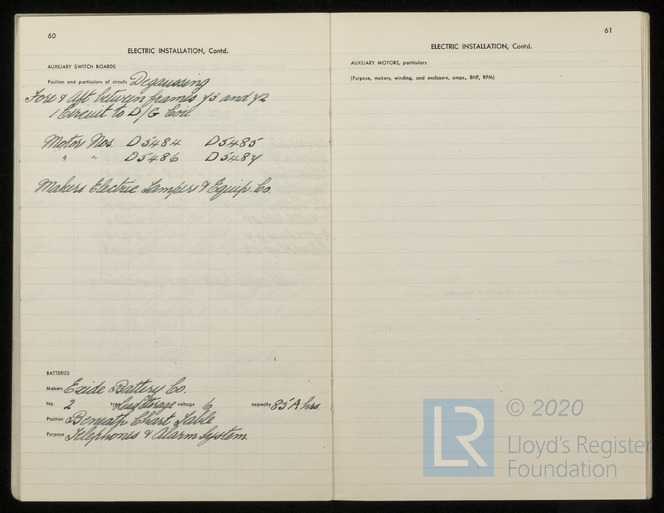 60
ELECTRIC INSTALLATION, Contd.
AUXILIARY SWITCH BOARDS
Position and particulars of circuits Degaussing
Fore & Aft between frames 43 and 42
1 Circuit to D/G Coil
Motor Nos. D5484 D5485
" " D5486 D5487
Makers Electric Tamper & Equip. Co.
BATTERIES
Makers Exide Battery Co.
No. 2 type Lead Storage voltage 6 capacity 85 A hrs.
Position Beneath Chart Table
Purpose Telephones & Alarm System
61
ELECTRIC INSTALLATION, Contd.
AUXILIARY MOTORS, particulars
(Purpose, makers, winding, and enclosure, amps., BHP, RPM)
LR
© 2020
Lloyd's Register
Foundation